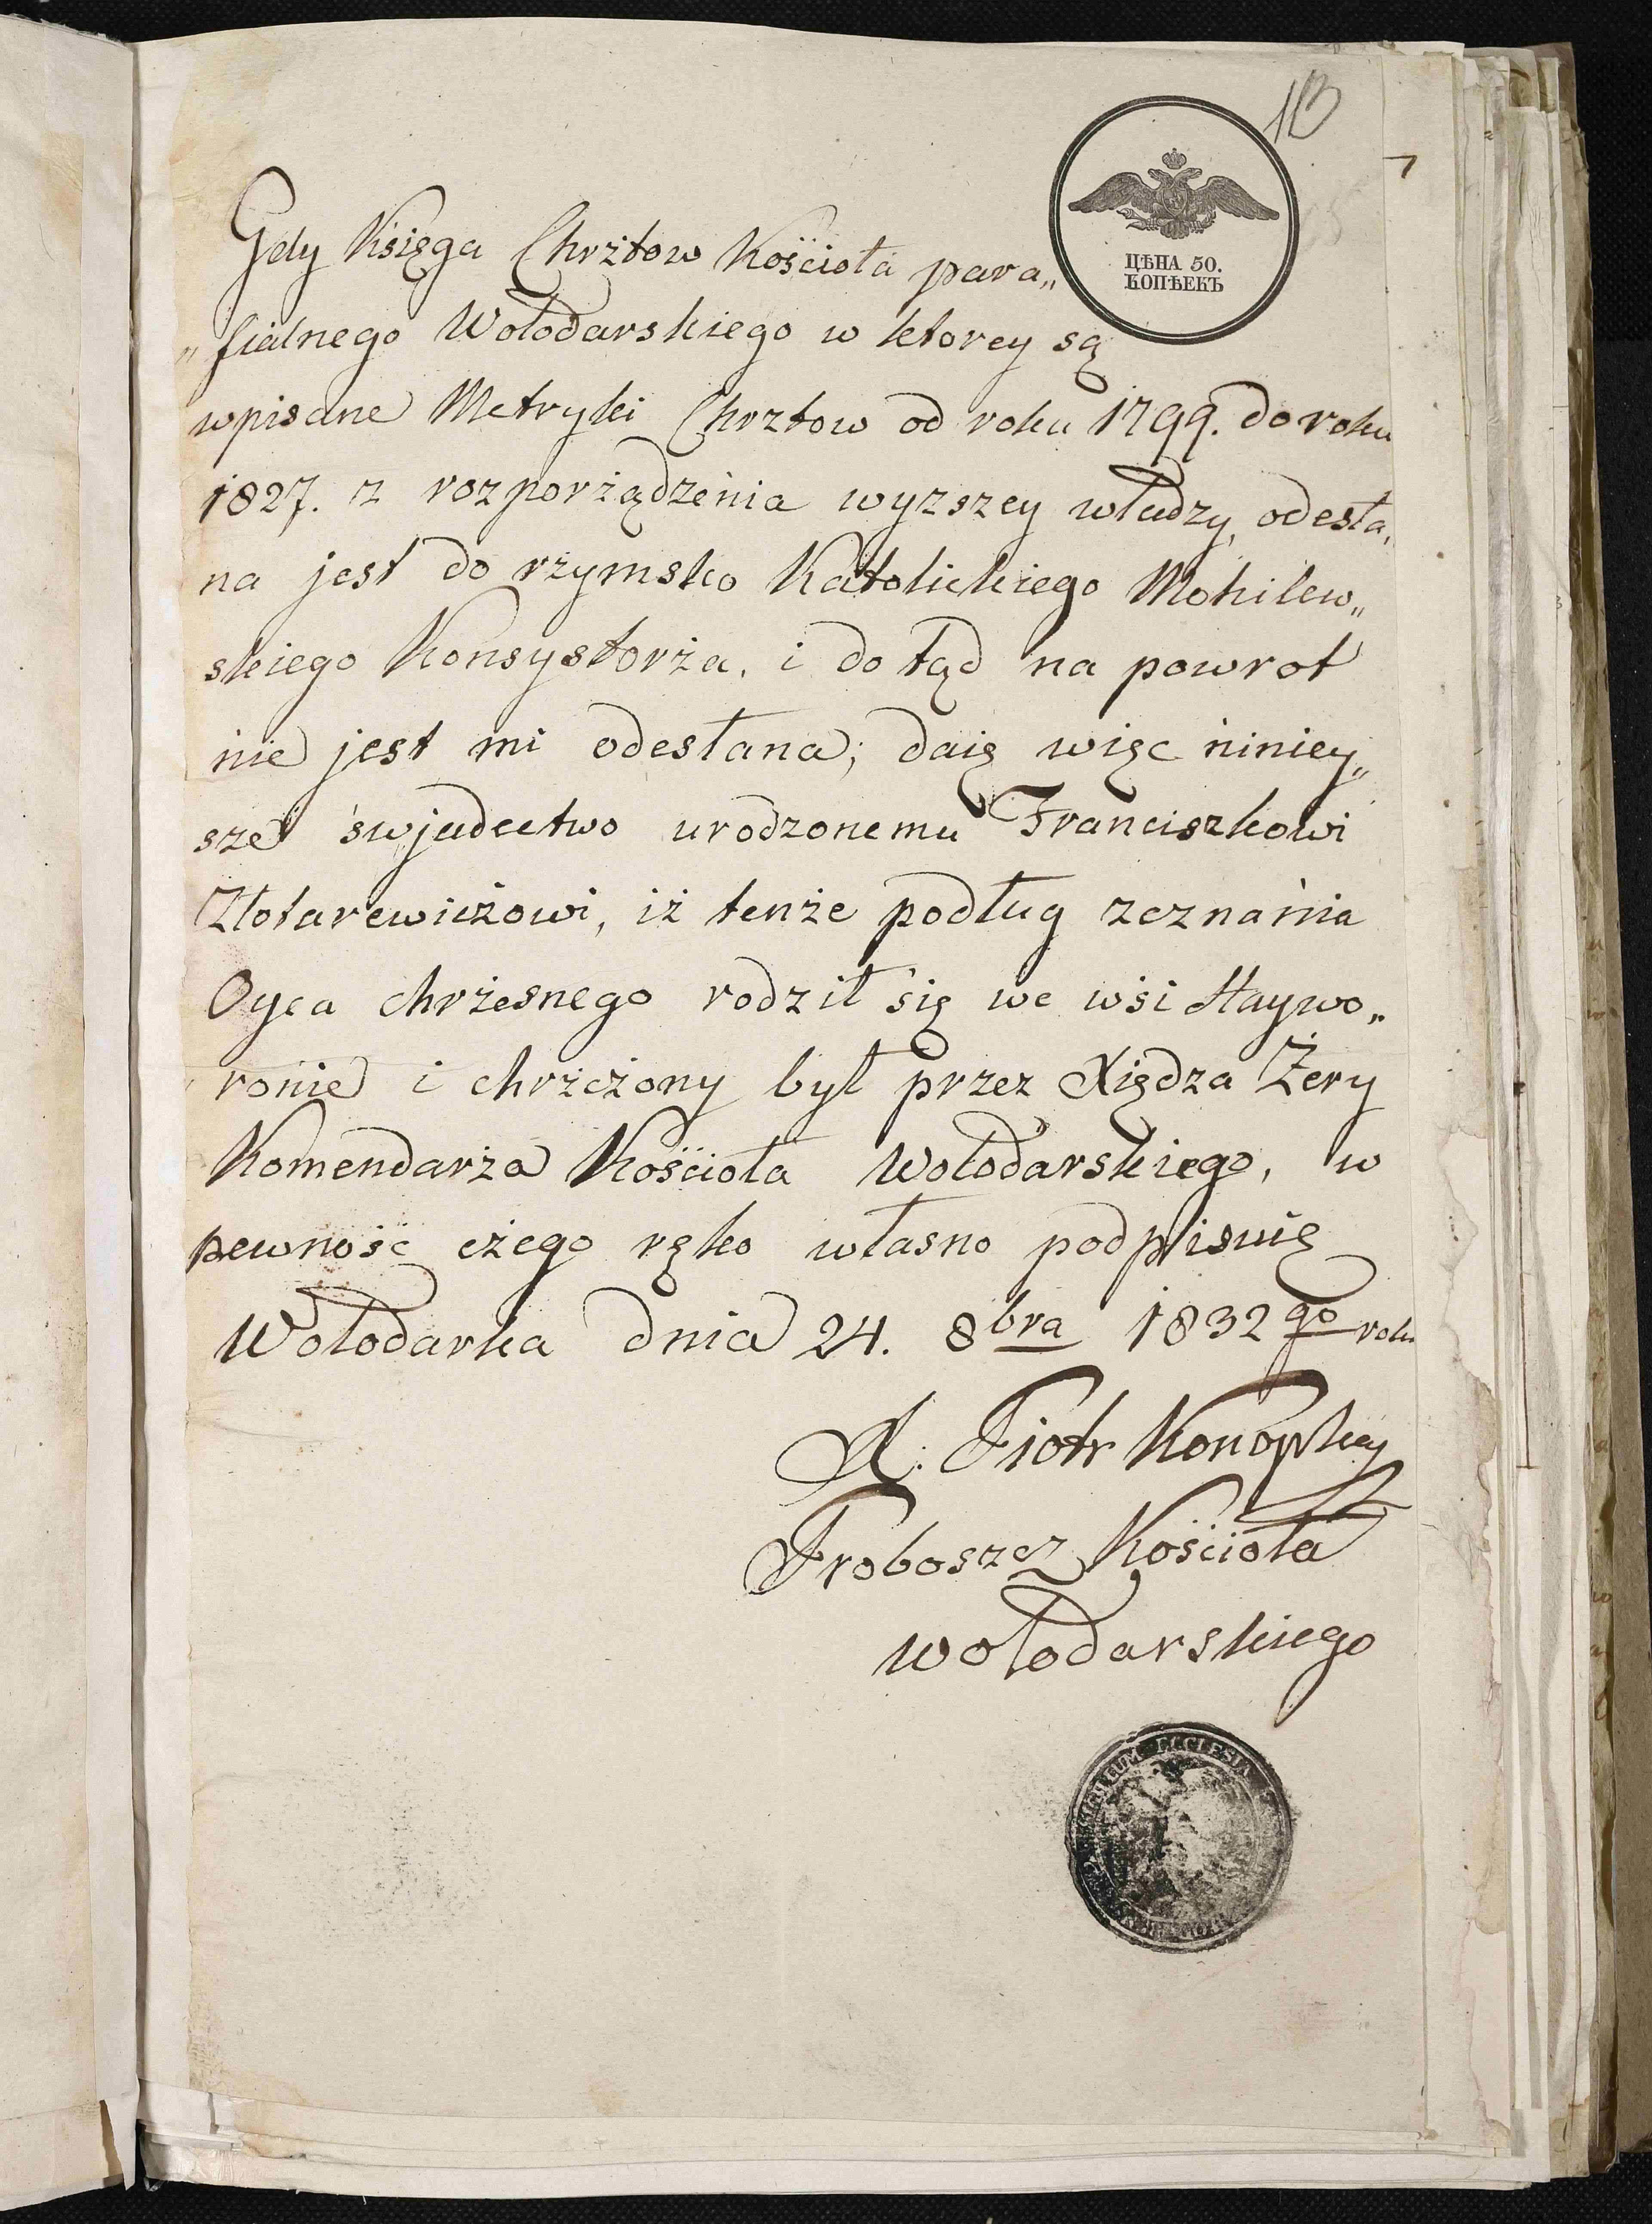 13
7
ЦѢНА 50.
КОПѢЕКЪ
Gdy Księga Chrztow Kościoła para„
„fialnego Wołodarskiego w ktorey są
wpisane Metryki Chrztow od roku 1799. do roku
1827. z rozporżądzenia wyzszey władzy, odesła„
na jest do rzymsko Katolickiego Mohilew„
skiego Konsystorża, i do tąd na powrot
nie jest mi odesłana; daię więc niniey„
sze świadectwo urodzonemu Franciszkowi
Złotarewiczowi, iż tenże podług zeznania
Oyca chrżesnego rodził się we wsi Haywo„
ronie i chrżcżony był przez Xiędza Żery
Komendarża Kościoła Wołodarskiego, w
pewność cżego ręko własno podpisuię
Wołodarka dnia 24. 8bra 1832go roku
X. Piotr Konopky
Proboszcz Kościoła
Wołodarskiego
ECCLESIA